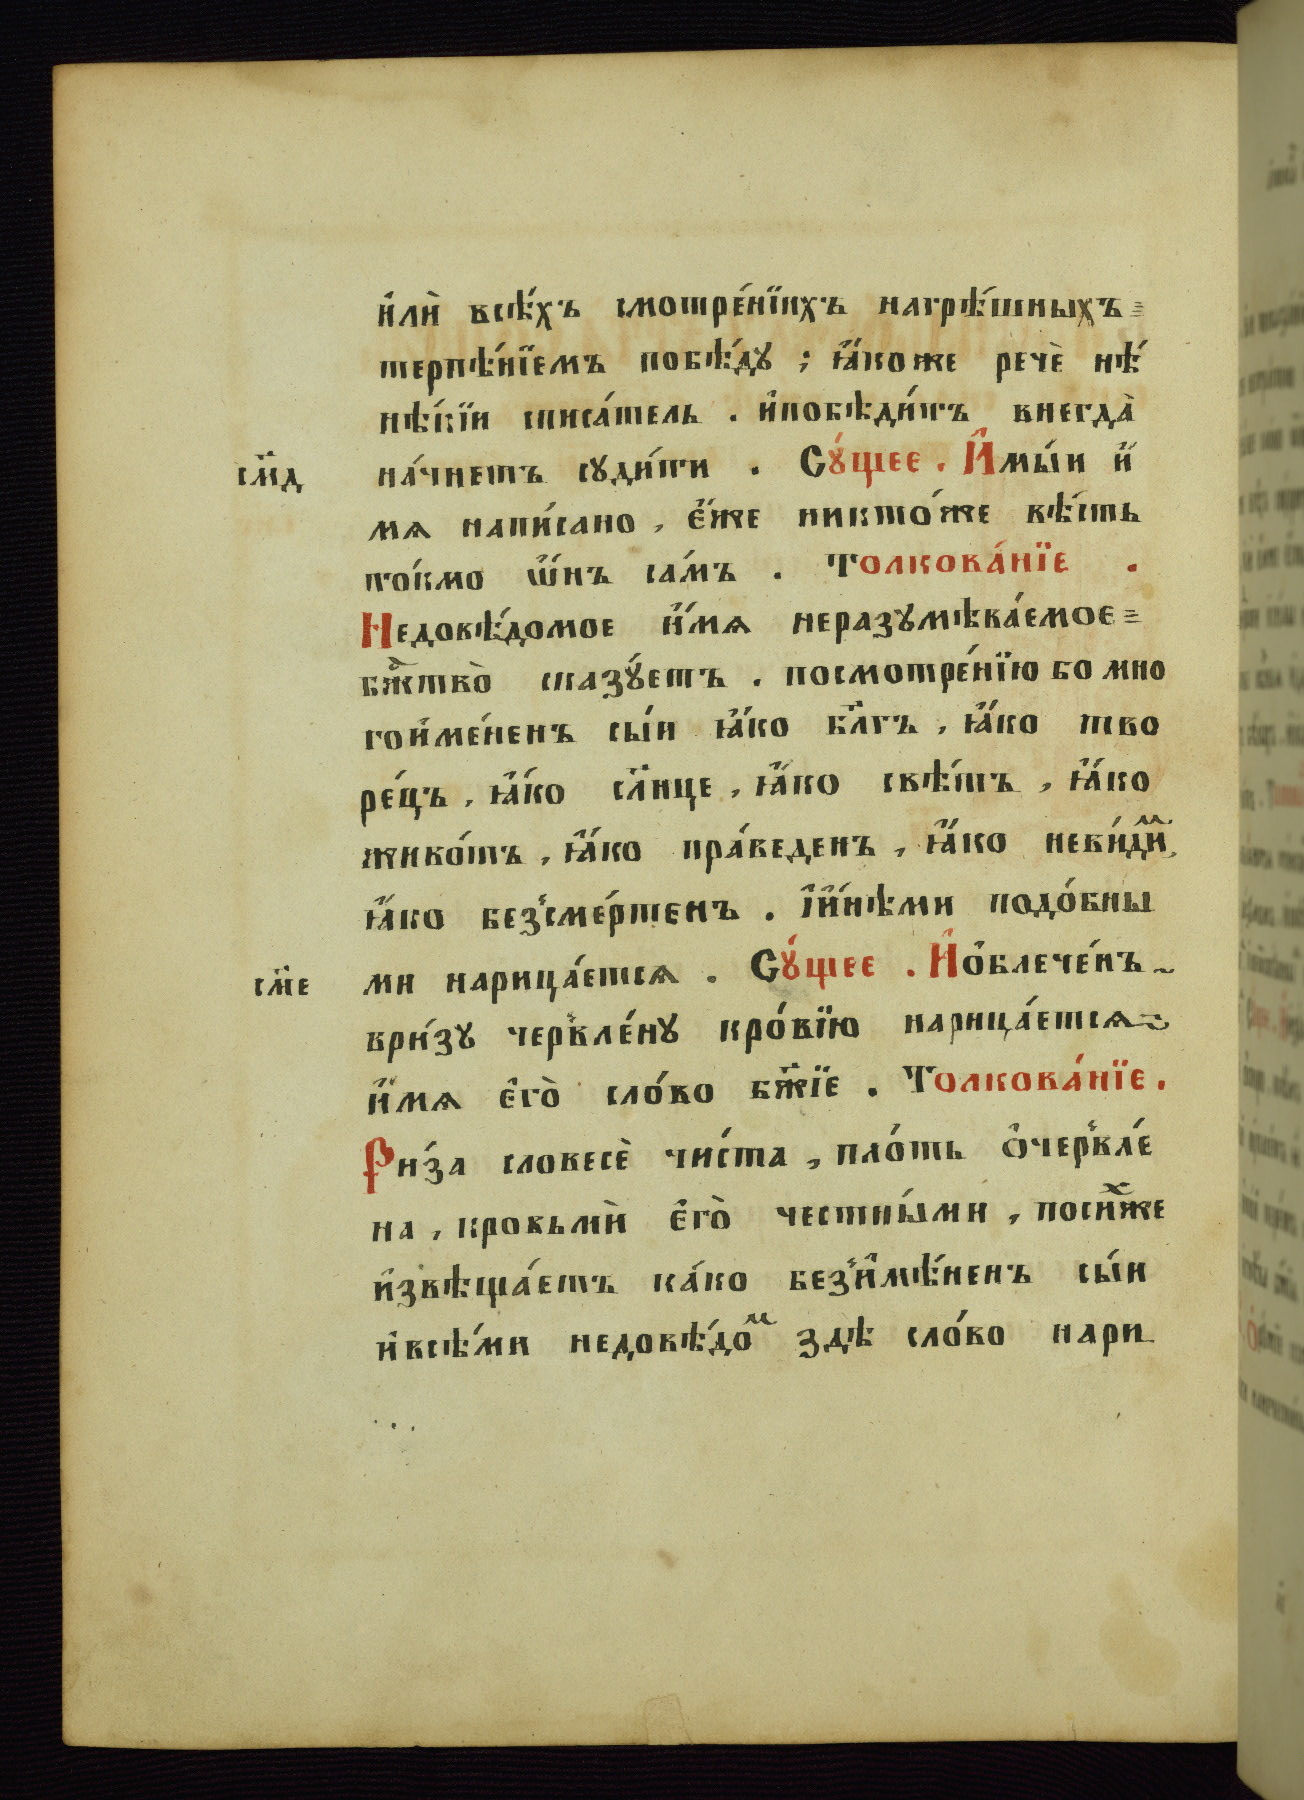 и҆лѝ всѣ́хъ смотре́нїихъ нагрѣ́шныхъ
терпѣ́нїемъ побѣ́ду ; ꙗ҆́коже речѐ нѣ́
нѣ́кїи списа́тель . и҆побѣди́тъ внегда̀
см҃д на́чнетъ суди́ти . Сꙋ́щее . И҆мы́и и҆́
мя написано , є҆́же никто́же вѣ́сть
то́кмо ѡ҆́нъ са́мъ . Толкова́нїе .
Недовѣ́домое и҆́мя неразꙋмѣва́емое
бж҃ство̀ сказꙋ́етъ . посмотре́нїю бо мно
гои҆ме́ненъ сы́и ꙗ҆́ко бл҃гъ , ꙗ҆́ко тво
ре́цъ , ꙗ҆́ко сл҃нце , ꙗ҆́ко свѣ́тъ , ꙗ҆́ко
живо́тъ , ꙗ҆́ко пра́веденъ , ꙗ҆́ко неви́диⷨ ,
ꙗ҆́ко безсме́ртенъ . І҆и҆́нѣми подо́бны
см҃е ми нарица́ется . Сꙋ́щее . И҆о҆блече́нъ
ври́зꙋ червле́нꙋ кро́вїю нарица́ется
и҆́мя є҆гѐ сло́во бж҃їе . Толкова́нїе .
Ри́за словесѐ чи́ста , пло́ть ѻ҆червле́
на , кровьмѝ є҆го̀ честны́ми , посиⷯже
и҆звѣща́етъ ка́ко бези҆мѣ́ненъ сы́и
и҆всѣ́ми недовѣ́доⷨ здѣ сло́во нари